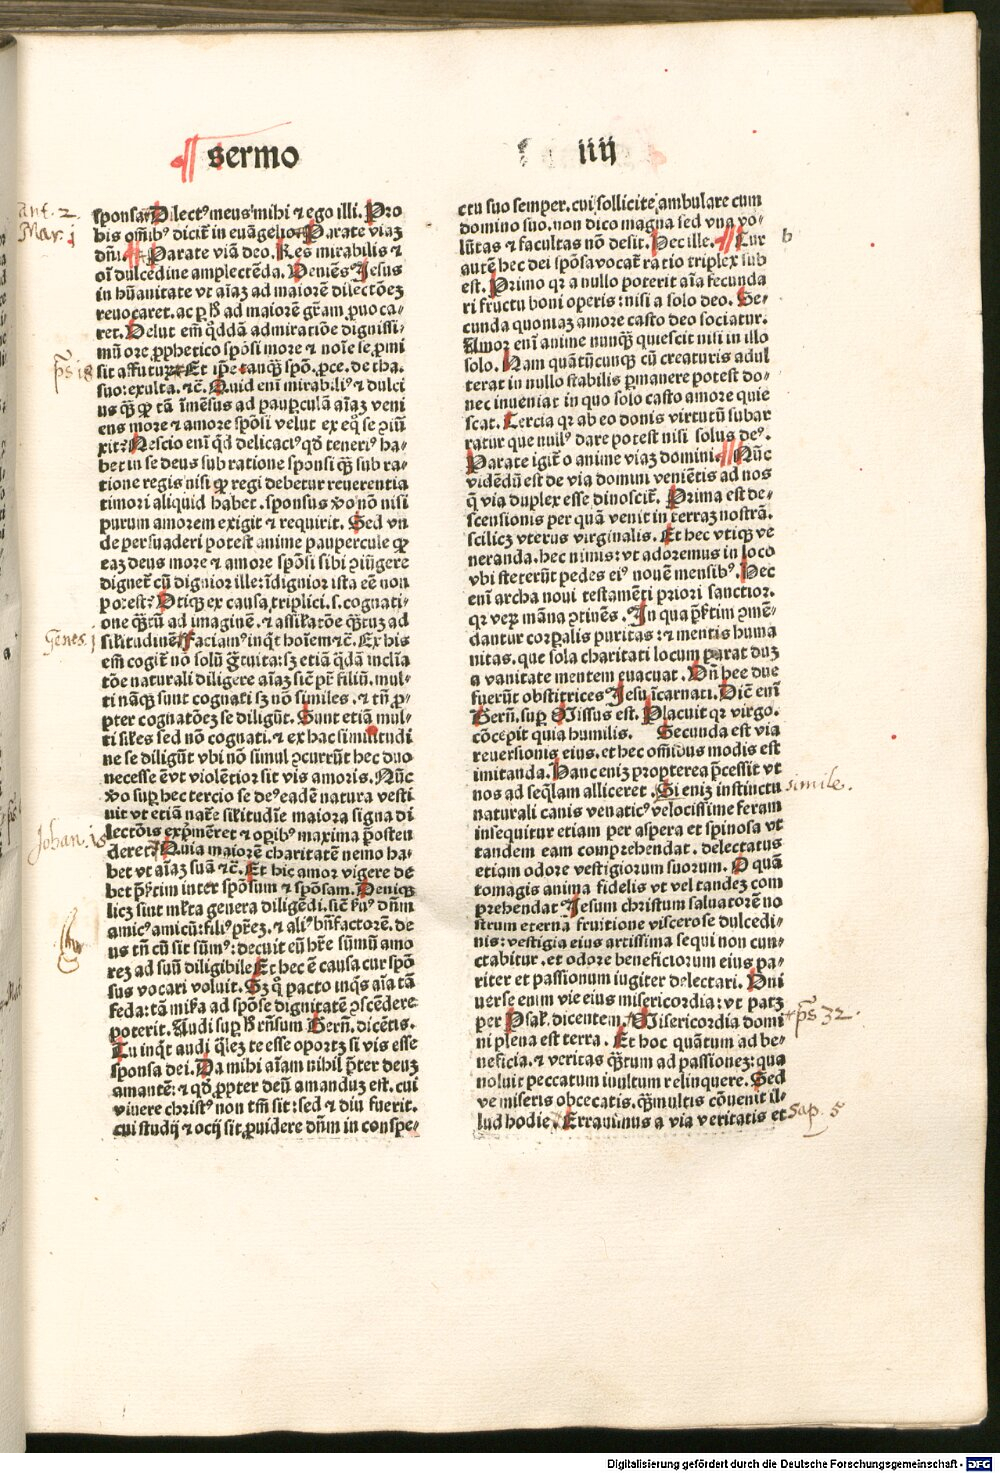 sermo iiij
sponsa. Dilectꝰ meus mihi ⁊ ego illi. Pro
bis om̄ibꝰ dicit̄ in euāgelio. Parate viaꝫ
dn̄i. Parate viā deo. Res mirabilis ⁊
oī dulcedine amplectēda. Veniēs Jesus
in hūanitate vt aīaꝫ ad maiorē dilectōeꝫ
reuocaret. ac ꝑ ad maiorē gr̄am ꝓuoca-
ret. Velut em̄ q̄ddā admiratiōe dignissi-
mū ore ꝓphetico spōsi more ⁊ noīe se ꝓmi
sit affuturū. Et ipē tanꝙ̄ spō. ꝓce. de tha.
suo: exulta. ⁊c̄. Quid enī mirabiliꝰ ⁊ dulci
us ꝙ̄ ꝙ tā īmēsus ad pauꝑculā aīaꝫ veni
ens more ⁊ amore spōsi velut ex eq̊ se ꝯiū
xit? Nescio enī qd̄ delicaciꝰ qd̊ teneriꝰ ha-
bet in se deus sub ratione sponsi ꝙ̄ sub ra-
tione regis nisi ꝙ regi debetur reuerentia
timori aliquid habet. sponsus v̊o nō nisi
purum amorem exigit ⁊ requirit. Sed vn
de persuaderi potest anime paupercule ꝙ
eaꝫ deus more ⁊ amore spōsi sibi ꝯiūgere
dignet̄ cū dignior ille: īdignior ista eē non
potest? Vtiqꝫ ex causa triplici. s. cognati-
one ꝙ̄tū ad imaginē. ⁊ assilatōe ꝙ̄tuꝫ ad
silitudinē. Faciamꝰ inq̄t hoīem ⁊c̄. Ex his
em̄ cogit̄ nō solū gr̄tuita: sꝫ etiā q̄dā inclīa
tōe naturali diligere aīaꝫ sic̄ pr̄ filiū. mul-
ti nāqꝫ sunt cognati sꝫ nō similes. ⁊ tn̄ ꝓ-
pter cognatōeꝫ se diligūt. Sunt etiā mul-
ti siles sed nō cognati. ⁊ ex hac similitudi
ne se diligūt vbi nō simul ꝯcurrūt hec duo
necesse ē vt violētior sit vis amoris. Nūc
v̊o suꝑ hec tercio se deꝰ eadē natura vesti
uit vt etiā nat̄e silitudīe maiora signa di
lectōis exp̄meret ⁊ oꝑibꝰ maxima p̄osten
deret? Quia maiorē charitatē nemo ha-
bet vt aīaꝫ suā ⁊c̄. Et hic amor vigere de
bet p̄sertim inter spōsum ⁊ spōsam. Deniqꝫ
licꝫ sint ml̄ta genera diligēdi. sic̄ ẜuꝰ dn̄m
amicꝰ amicū: filiꝰ pr̄eꝫ. ⁊ aliꝰ bn̄factorē. de
us tn̄ cū sit sūmꝰ: decuit eū hr̄e sūmū amo
reꝫ ad suū diligibile. Et hec ē causa cur spō
sus vocari voluit. Sꝫ q̊ pacto inqͥs aīa tā
feda: tā misera ad spōse dignitatē ꝯscēdere
poterit. Audi suꝑ Bern̄. dicētis.
Tu inq̄t audi qͣleꝫ te esse oportꝫ si vis esse
sponsa dei. Da mihi aīam nihil p̄ter deuꝫ
amantē: ⁊ qd̊ ꝓpter deū amanduꝫ est. cui
viuere christꝰ non tm̄ sit: sed ⁊ diu fuerit.
cui studij ⁊ ocij sit ꝓuidere dn̄m in conspe-
ctu suo semper. cui sollicite ambulare cum
domino suo. non dico magna sed vna vo-
lūtas ⁊ facultas nō desit. Hec ille. Cur
autē hec dei spōsa vocat̄ ratio triplex sub
est. Primo qꝛ a nullo poterit aīa fecunda
ri fructu boni operis: nisi a solo deo. Se-
cunda quoniaꝫ amore casto deo sociatur.
Amor enī anime nunꝙ̄ quiescit nisi in illo
solo. Nam quātūcunqꝫ cū creaturis adul
terat in nullo stabilis ꝑmanere potest do-
nec inueniat in quo solo casto amore quie
scat. Tercia qꝛ ab eo donis virtutū subar
ratur que nullꝰ dare potest nisi solus deꝰ.
Parate igit̄ o anime viaꝫ domini. Nūc
vidēdū est de via domini veniētis ad nos
q̄ via duplex esse dinoscit̄. Prima est de-
scensionis per quā venit in terraꝫ nostrā.
scilicꝫ vterus virginalis. Et hec vtiqꝫ ve
neranda. hec nimis: vt adoremus in loco
vbi steterūt pedes eiꝰ nouē mensibꝰ. Hec
enī archa noui testamēti priori sanctior.
qꝛ veꝝ māna ꝯtinēs. In qua p̄ꝑtim ꝯmē-
dantur corꝑalis puritas: ⁊ mentis huma
nitas. que sola charitati locum parat duꝫ
a vanitate mentem euacuat. Vn̄ hee due
fuerūt obstitrices Jesu īcarnati. Dic̄ enī
Bern̄. suꝑ Missus est. Placuit qꝛ virgo.
cōcepit quia humilis. Secunda est via
reuersionis eius. et hec om̄ibus modis est
imitanda. Hanc eniꝫ propterea p̄cessit vt
nos ad seq̄lam alliceret. Si eniꝫ instinctu
naturali canis venaticꝰ velocissime feram
insequitur etiam per aspera et spinosa vt
tandem eam comprehendat. delectatus
etiam odore vestigiorum suorum. O quā
tomagis anima fidelis vt vel tandeꝫ com
prehendat Jesum christum saluatorē no
strum eterna fruitione viscerose dulcedi-
nis: vestigia eius artissima sequi non cun-
ctabitur. et odore beneficiorum eius pa-
riter et passionum iugiter delectari. Vni
uerse enim vie eius misericordia: vt patꝫ
per Psal. dicentem. Misericordia domi
ni plena est terra. Et hoc quātum ad be-
neficia. ⁊ veritas ꝙ̄tum ad passioneꝫ: qua
noluit peccatum inultum relinquere. Sed
ve miseris obcecatis. ꝙ̄multis cōuenit il-
lud hodie. Errauimus a via veritatis et
Mar. j
ps 18
Genes. j
Johan. 15
b
simile.
ps 32.
Sap. 5
a
Digitalisierung gefördert durch die Deutsche Forschungsgemeinschaft - DFG